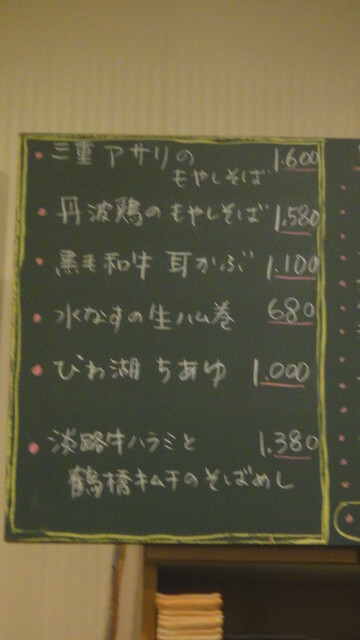 ・三重アサリの 1.600
もやしそば
・丹波鶏のもやしそば 1.580
・黒毛和牛 耳かぶ 1.100
・水なすの生ハム巻 680
・びわ湖 ちあゆ 1.000
・淡路牛ハラミと 1.380
鶴橋キムチのそばめし